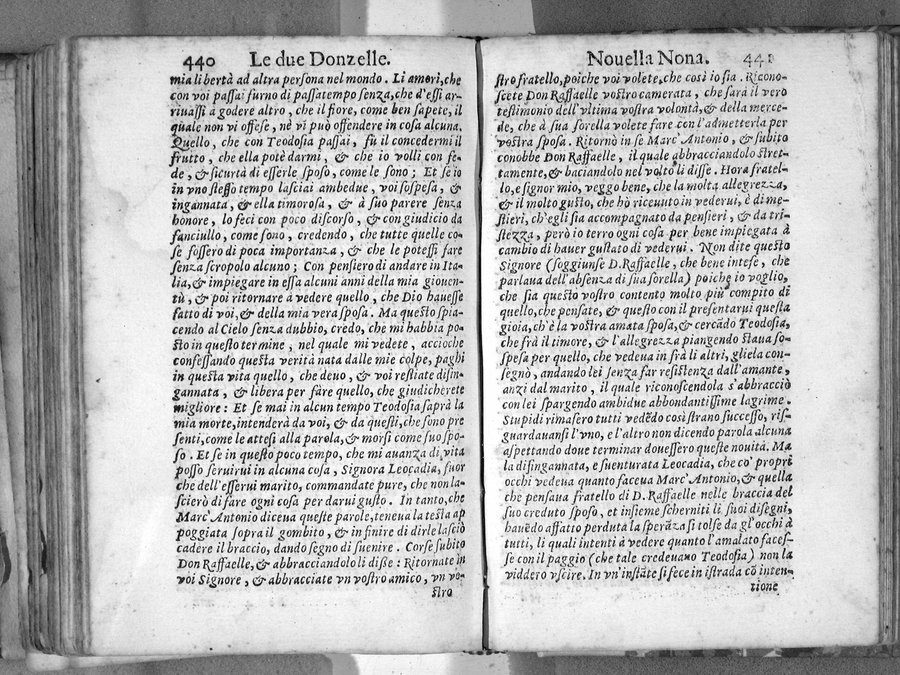 440 Le due Donzelle.
mia libertà ad altra persona nel mondo. Li amori, che
con voi passai furno di passatempo senza, che d'essi ar-
riuassi à godere altro, che il fiore, come ben sapete, il
quale non vi offese, nè vi può offendere in cosa alcuna.
Quello, che con Teodosia passai, fù il concedermi il
frutto, che ella potè darmi, & che io volli con fe-
de, & sicurtà di esserle sposo, come le sono; Et se io
in vno stesso tempo lasciai ambedue, voi sospesa, &
ingannata, & ella timorosa, & à suo parere senza
honore, lo feci con poco discorso, & con giudicio da
fanciullo, come sono, credendo, che tutte quelle co-
se fossero di poca importanza, & che le potessi fare
senza scropolo alcuno; Con pensiero di andare in Ita-
lia, & impiegare in essa alcuni anni della mia giouen-
tù, & poi ritornare à vedere quello, che Dio hauesse
fatto di voi, & della mia vera sposa. Ma questo spia-
cendo al Cielo senza dubbio, credo, che mi habbia po-
sto in questo termine, nel quale mi vedete, accioche
confessando questa verità nata dalle mie colpe, paghi
in questa vita quello, che deuo, & voi restiate disin-
gannata, & libera per fare quello, che giudicherete
migliore: Et se mai in alcun tempo Teodosia saprà la
mia morte, intenderà da voi, & da questi, che sono pre
senti, come le attesi alla parola, & morsi come suo spo-
so. Et se in questo poco tempo, che mi auanza di vita
posso seruirui in alcuna cosa, Signora Leocadia, fuor
che dell'esserui marito, commandate pure, che non la-
scierò di fare ogni cosa per darui gusto. In tanto, che
Marc'Antonio diceua queste parole, teneua la testa ap
poggiata sopra il gombito, & in finire di dirle lasciò
cadere il braccio, dando segno di suenire. Corse subito
Don Raffaelle, & abbracciandolo li disse: Ritornate in
voi Signore, & abbracciate vn vostro amico, vn vo-
stro
Nouella Nona. 441
stro fratello, poiche voi volete, che così io sia. Ricono-
scete Don Raffaelle vostro camerata, che sarà il vero
testimonio dell'vltima vostra volontà, & della merce-
de, che à sua sorella volete fare con l'admetterla per
vostra sposa. Ritornò in se Marc'Antonio, & subito
conobbe Don Raffaelle, il quale abbracciandolo stret-
tamente, & baciandolo nel volto li disse. Hora fratel-
lo, e signor mio, veggo bene, che la molta allegrezza,
& il molto gusto, che hò riceuuto in vederui, è di me-
stieri, ch'egli sia accompagnato da pensieri, & da tri-
stezza, però io terro ogni cosa per bene impiegata à
cambio di hauer gustato di vederui. Non dite questo
Signore (soggiunse D. Raffaelle, che bene intese, che
parlaua dell'absenza di sua sorella) poiche io voglio,
che sia questo vostro contento molto più compito di
quello, che pensate, & questo con il presentarui questa
gioia, ch'è la vostra amata sposa, & cercãdo Teodosia,
che frà il timore, & l'allegrezza piangendo staua so-
spesa per quello, che vedeua in frà li altri, gliela con-
segnò, andando lei senza far resistenza dall'amante,
anzi dal marito, il quale riconoscendola s'abbracciò
con lei spargendo ambidue abbondantissime lagrime.
Stupidi rimasero tutti vedẽdo così strano successo, ris-
guardauansi l'vno, e l'altro non dicendo parola alcuna
aspettando doue terminar douessero queste nouità. Ma
la disingannata, e suenturata Leocadia, che co' propri
occhi vedeua quanto faceua Marc'Antonio, & quella
che pensaua fratello di D. Raffaelle nelle braccia del
suo creduto sposo, et insieme scherniti li suoi disegni,
hauẽdo affatto perduta la sperãza si tolse da gl'occhi à
tutti, li quali intenti à vedere quanto l'amalato faces-
se con il paggio (che tale credeuano Teodosia) non la
viddero vscire. In vn'instãte si fece in istrada cõ inten-
tione